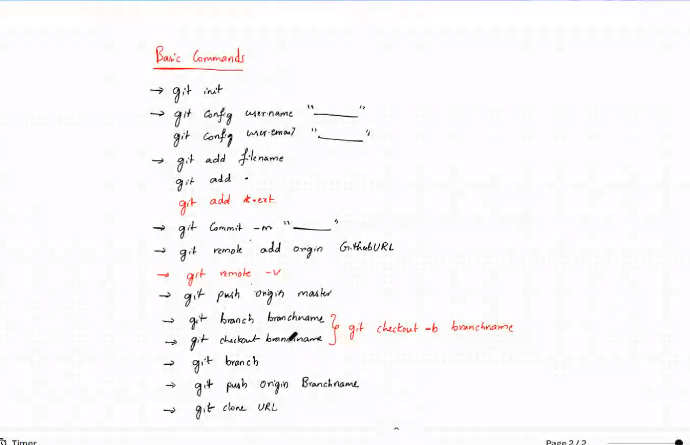 Basic Commands
→ git init
→ git config user.name "______"
git config user.email "______"
→ git add filename
git add .
git add *.ext
→ git Commit -m "______"
→ git remote add origin GithubURL
→ git remote -v
→ git push origin master
→ git branch branchname
→ git checkout branchname
} git checkout -b branchname
→ git branch
→ git push origin Branchname
→ git clone URL
Timer
Page 2 / 2